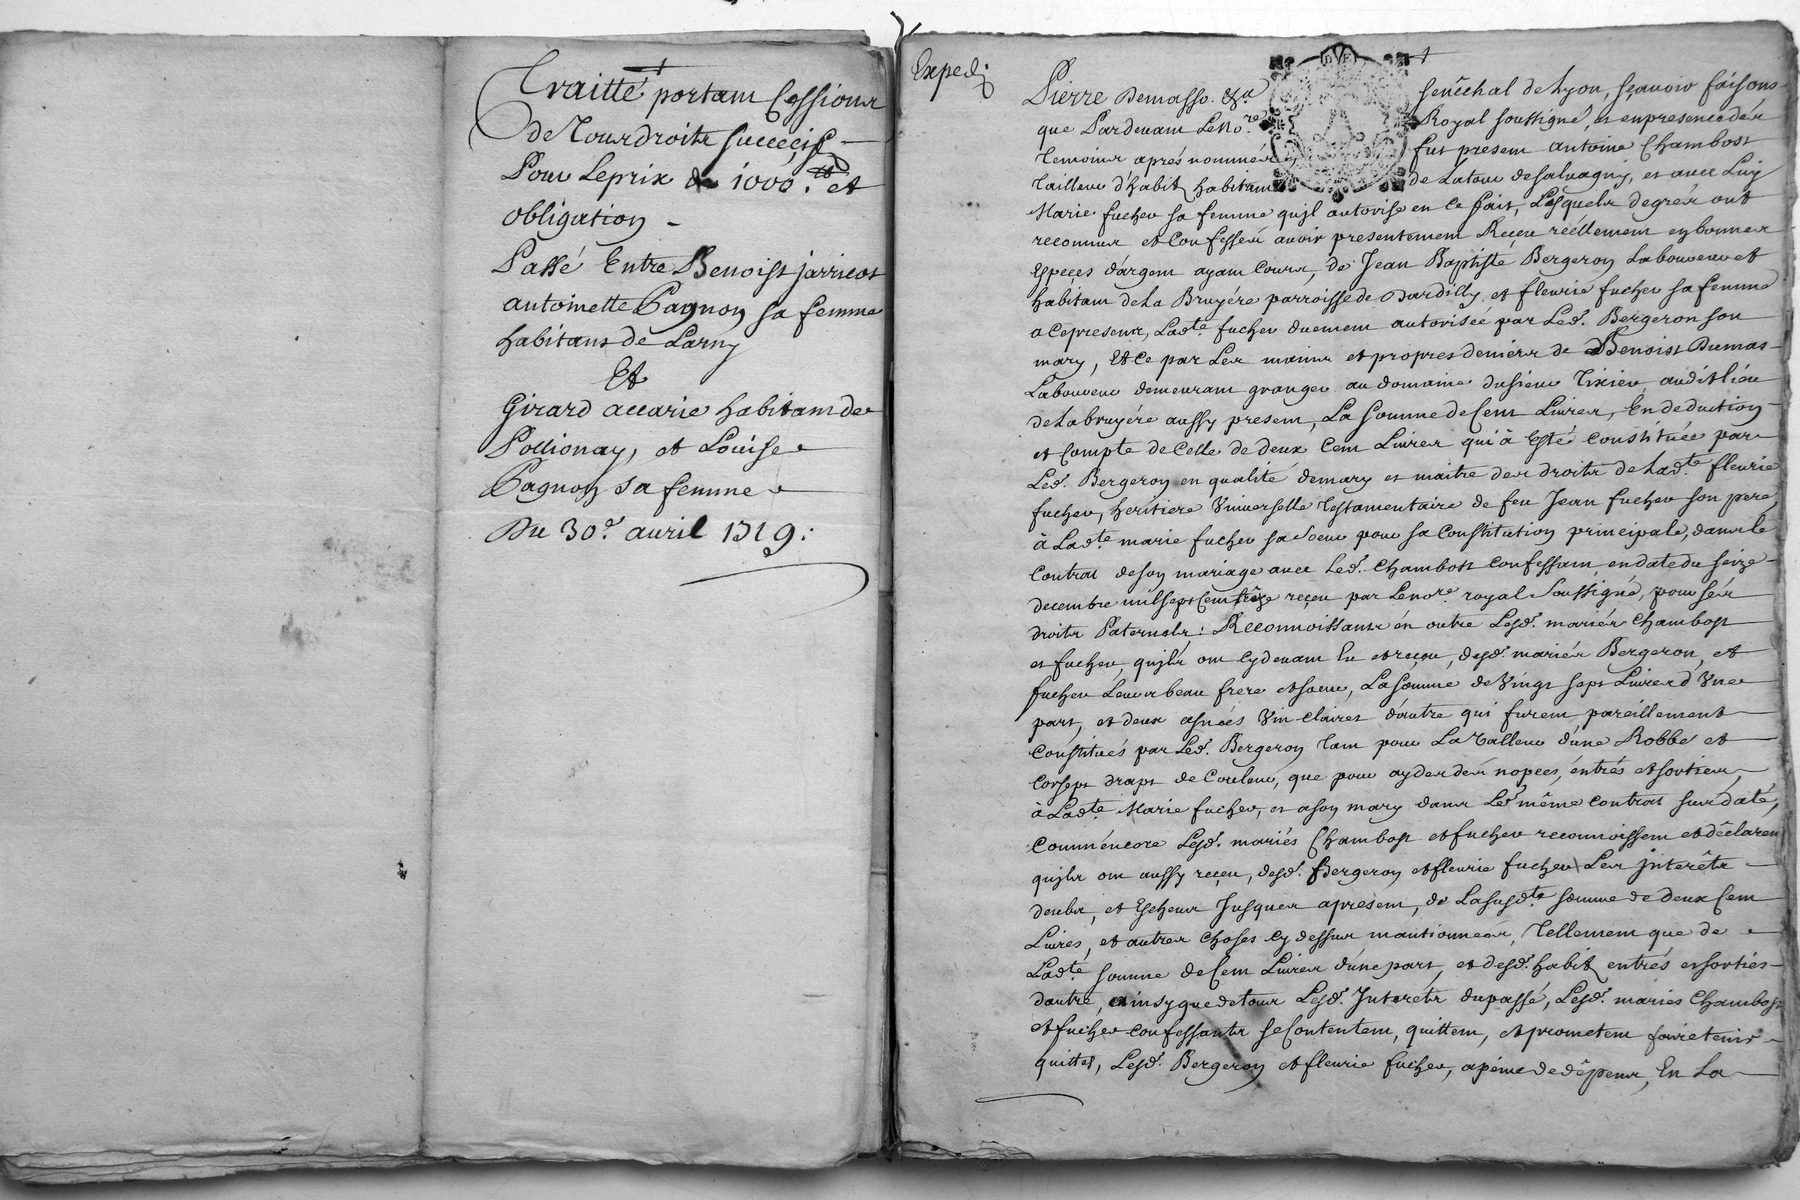 Traitté portant Cessions
de Tous droits successifs
Pour Le prix de 1000.lt et
obligation
Passé Entre Benoist jarricot
antoinette Pagnon sa femme
habitans de Larny
Et
Girard accarie habitant de
Pollionay, et Louise
Pagnon sa femme
Du 30e. auril 1719:
Exped:
Pierre Demasso &ca senêchal de Lyon, sçauoir faisons
que Pardeuant Le Nore. Royal soussigné, et en presence des
temoins aprés nommés fut present antoine Chambost
Tailleur d'habit habitant de Latour desaluagny, et auec Luy
Marie fucher sa femme quil autorise en ce fait, Lesquels degrés ont
reconnus et Confessés auoir presentement Receu réellement en bonnes
Especes d'argent ayant Cours, de Jean Baptiste Bergeron Laboureur et
habitant de La Bruyére parroisse de Dardilly et fleurie fucher sa femme
a ce present, Ladte. fucher duement autorisée par Led. Bergeron son
mary, Et ce par Les mains et propres deniers de Benoist Dumas
Laboureur demeurant granger au domaine du sieur Tixier audit lieu
de La bruyére aussy present, La somme de Cent Liures, En deduction
et compte de Celle de deux Cent Liures qui à Esté constituée par
Led. Bergeron en qualité de mary et maitre des droits de Ladte. fleurie
fucher, heritiere Vniuerselle Testamentaire de feu Jean fucher son pere,
à Ladte. marie fucher sa soeur pour sa Constitution principale, dans le
Contrat de son mariage auec Led. Chambost confessant en date du seize
decembre mil sept Cent treize reçeu par Le nore. royal Soussigné, pour ses
droits Paternels: Reconnoissants én outre Lesd. mariés Chambost
et fucher, quils ont cydeuant Eu et reçeu, desd. mariés Bergeron, et
fucher Leurs beau frere et soeur, La somme de Vingt sept Liures d'Vne
part, et deux asnées Vin clairet d'autre qui furent pareillement
Constitués par Led. Bergeron tant pour La Valleur d'une Robbe et
Corsept draps de Couleur, que pour ayder des nopces, éntrés et sorties,
à Ladte. Marie fucher, et a son mary dans Led même Contrat susdaté,
Comm'éncore Lesd. mariés Chambost et fucher reconnoissent et déclarent
quils ont aussy reçeu, desd. Bergeron et fleurie fucher Les jnterêts
deubs, et Escheus Jusques apresent, de La susdte. somme de deux Cent
Liures, et autres choses cy dessus mantionnées, Tellement que de
Ladte. somme de Cent Liures d'une part, et desd. habit entrés et sorties
d'autre, ainsy que de tous Lesd. Jnterêts du passé, Lesd. mariés Chambost
et fucher confessants se Contentent, quittent, et prometent faire tenir
quittes, Lesd. Bergeron et fleurie fucher, a péine de dêpens, En La